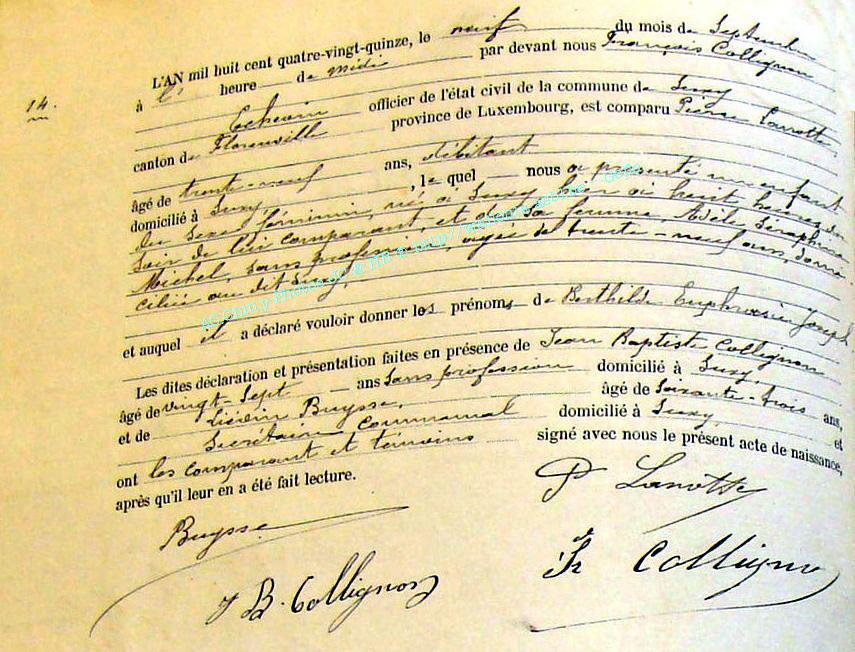 14.
L'AN mil huit cent quatre-vingt-quinze, le neuf du mois de Septembre
à l' heure de midi par devant nous François Collignon
Echevin officier de l'état civil de la commune de Suxy
canton de Florenville province de Luxembourg, est comparu Pierre Lanotte,
âgé de trente-neuf ans, débitant
domicilié à Suxy, , lequel nous a présenté un enfant
du sexe féminin, né à Suxy hier à huit heures du
soir de lui comparant, et de sa femme, Adèle Séraphine
Michel, sans profession, agée de trente-neuf ans, domi-
ciliée au dit Suxy,
et auquel il a déclaré vouloir donner les prénoms de Berthilde Euphrasie Joseph.
Les dites déclaration et présentation faites en présence de Jean Baptiste Collignon
âgé de vingt-sept ans sans profession domicilié à Suxy,
et de Liévin Buysse, âgé de soixante-trois ans,
Secrétaire communal domicilié à Suxy, et
ont les comparant et témoins signé avec nous le présent acte de naissance,
après qu'il leur en a été fait lecture.
P Lanotte
Buysse
J B. Collignon
Fr Collignon